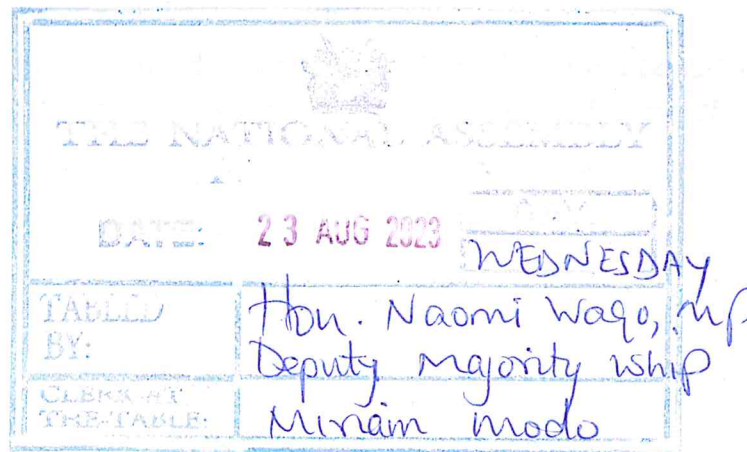 THE NATIONAL ASSEMBLY
DATE: 23 AUG 2023
DAY
WEDNESDAY
TABLED BY: Hon. Naomi Waqo, MP
Deputy Majority Whip
CLERK-AT THE-TABLE: Miriam Modo